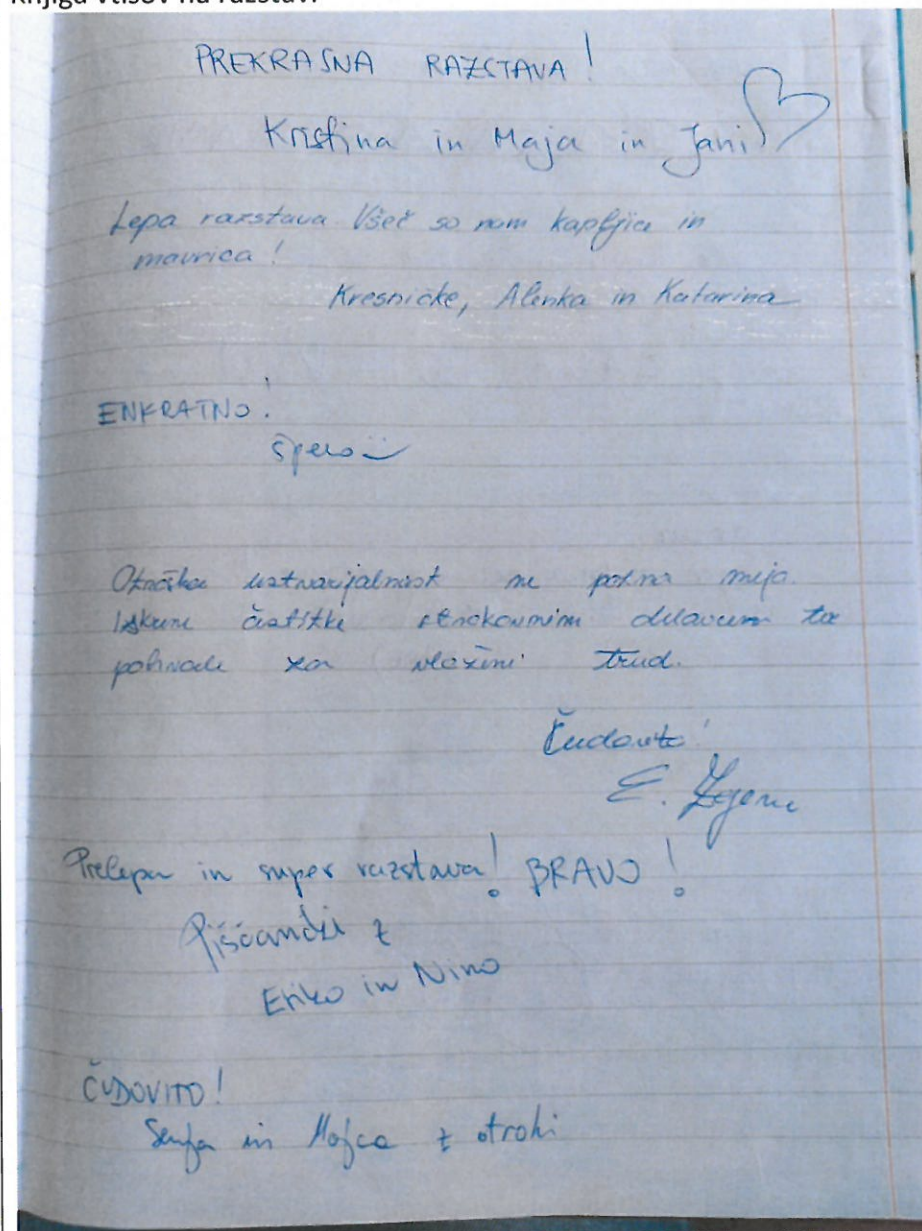 Knjiga vtisov na razstavi
PREKRASNA RAZSTAVA!
Kristina in Maja in Jani
Lepa razstava Všeč so nam kapljica in
mavrica!
Kresničke, Alenka in Katarina
ENKRATNO!
Otroška ustvarjalnost ne pozna meja.
Iskrene čestitke strokovnim delavcem ter
pohvale za vložen trud.
Čudovito!
E.
Prelepa in super razstava! BRAVO!
Piščančki z
Eriko in Nino
ČUDOVITO!
in Mojca z otroki